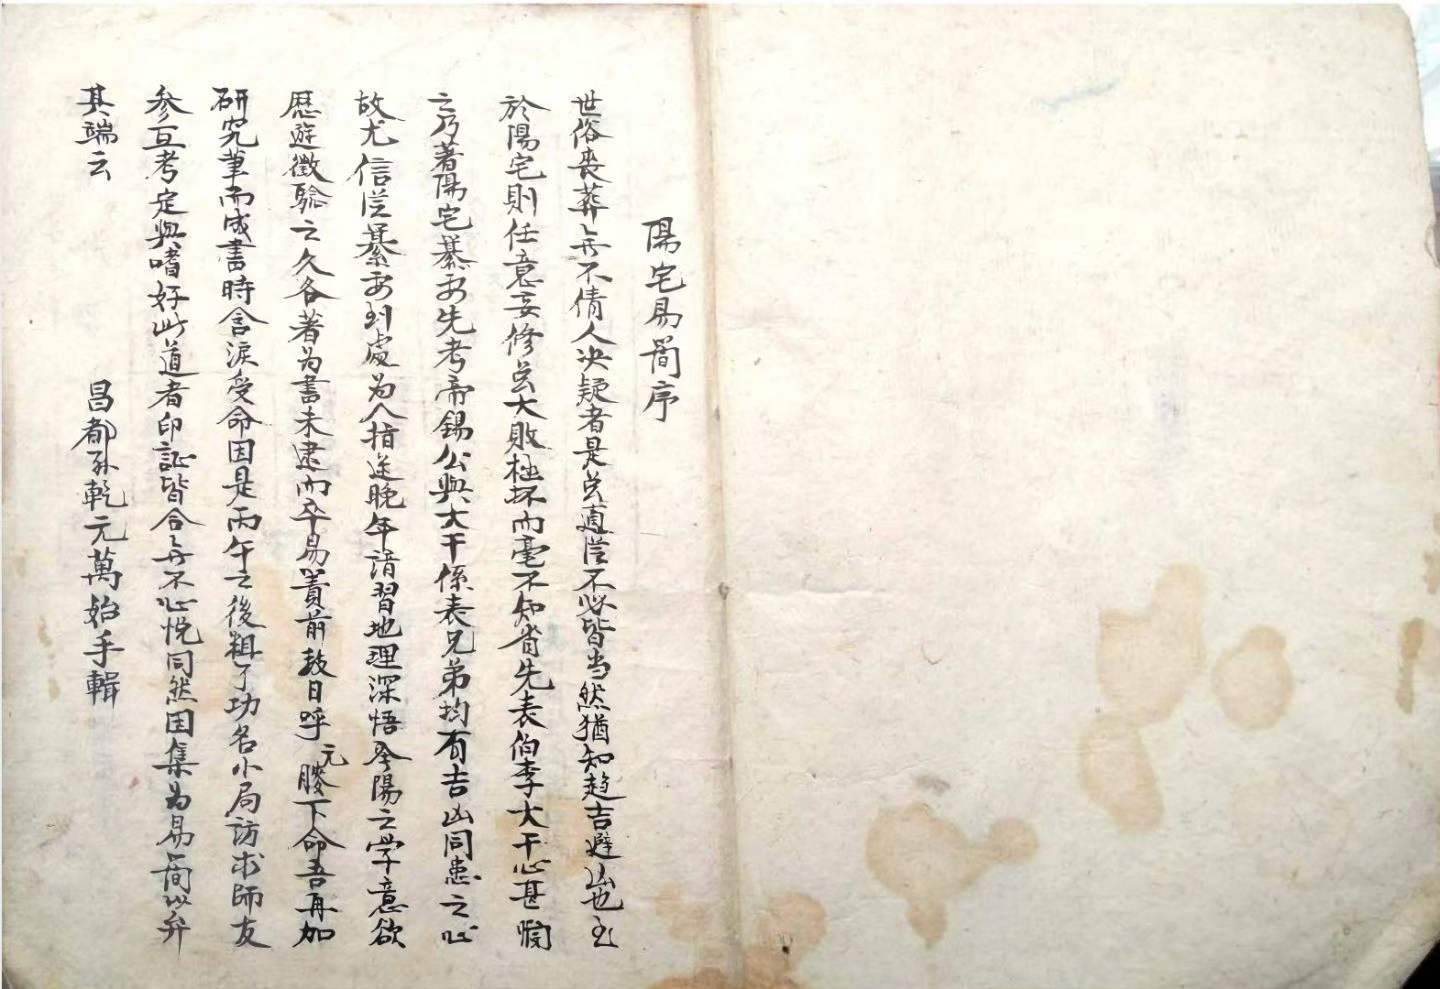 陽宅易簡序
世俗喪葬無不倩人决疑者是岂遵従不必皆当然猶知趋吉避凶也至
於陽宅則任意妄修岂大敗極坏而毫不知省先表伯李大干心甚憫
之乃著陽宅纂要先考帝錫公與大干係表兄弟均有吉凶同患之心
故尤信従纂要到處为人指迷晚年諳習地理深悟全陽之学意欲
歷遊徵騐之久各著为書未逮而卒易簀前数日呼元膝下命吾再加
研究筆而成書時含淚受命因是丙午之後粗了功名小局訪求師友
参互考定與嗜好此道者印証皆合無不心悅同然因集为易簡以弁
其端云
昌都孫乾元萬始手輯